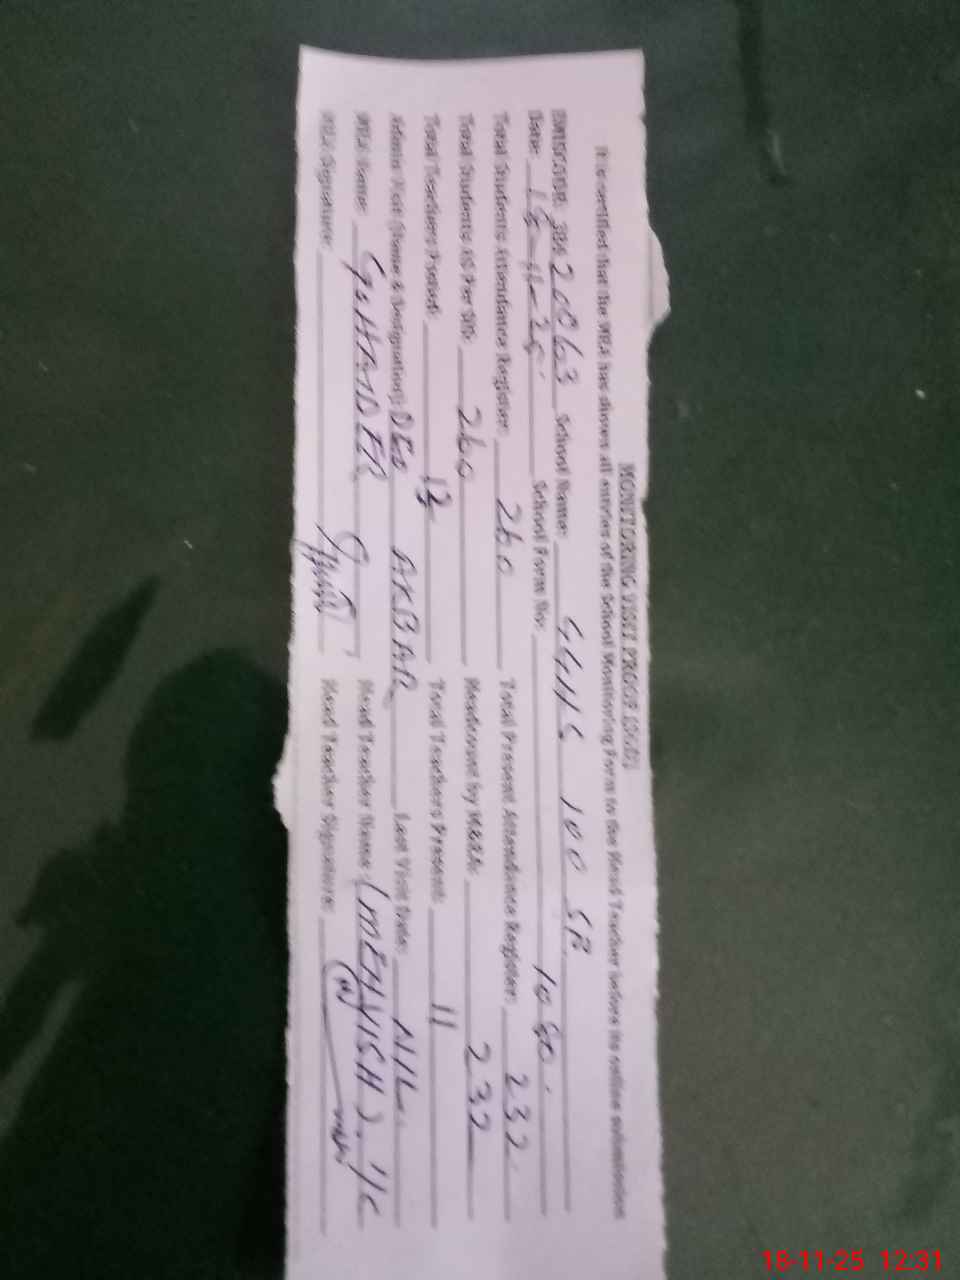 MONITORING VISIT PROOF
It is certified that the MEA has shown all entries of the School Monitoring Form to the Head Teacher before its online submission
EMISCODE: 20063 School Name: GGHS 100 SB
Date: 18-11-25. School Form No: 1080.
Total Students Attendance Register: 260 Total Present Attendance Register: 232.
Total Students AS Per SIS: 260 Headcount by MEA: 232
Total Teachers Posted: 12 Total Teachers Present: 11
Admin Visit (Name & Designation): DEO AKBAR Last Visit Date: NIL.
MEA Name: Head Teacher Name: (MEHVISH). I/c
MEA Signature: Head Teacher Signature:
18-11-25 12:31